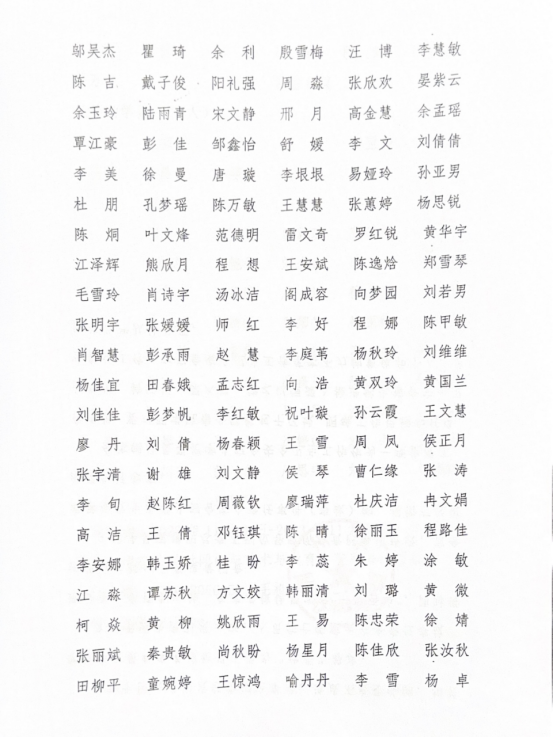 邬吴杰 瞿琦 余利 殷雪梅 汪博 李慧敏
陈吉 戴子俊 阳礼强 周淼 张欣欢 晏紫云
余玉玲 陆雨青 宋文静 邢月 高金慧 余孟瑶
覃江豪 彭佳 邹鑫怡 舒媛 李文 刘倩倩
李美 徐曼 唐璇 李垠垠 易娅玲 孙亚男
杜朋 孔梦瑶 陈万敏 王慧慧 张蕙婷 杨思锐
陈炯 叶文烽 范德明 雷文奇 罗红锐 黄华宇
江泽辉 熊欣月 程想 王安斌 陈逸焓 郑雪琴
毛雪玲 肖诗宇 汤冰洁 阁成容 向梦园 刘若男
张明宇 张媛媛 师红 李好 程娜 陈甲敏
肖智慧 彭承雨 赵慧 李庭苇 杨秋玲 刘维维
杨佳宜 田春娥 孟志红 向浩 黄双玲 黄国兰
刘佳佳 彭梦帆 李红敏 祝叶璇 孙云霞 王文慧
廖丹 刘倩 杨春颖 王雪 周凤 侯正月
张宇清 谢雄 刘文静 侯琴 曹仁缘 张涛
李旬 赵陈红 周薇钦 廖瑞萍 杜庆洁 冉文娟
高洁 王倩 邓钰琪 陈晴 徐丽玉 程路佳
李安娜 韩玉娇 桂盼 李蕊 朱婷 涂敏
江淼 谭苏秋 方文姣 韩丽清 刘璐 黄微
柯焱 黄柳 姚欣雨 王易 陈忠荣 徐婧
张丽斌 秦贵敏 尚秋盼 杨星月 陈佳欣 张汝秋
田柳平 童婉婷 王惊鸿 喻丹丹 李雪 杨卓